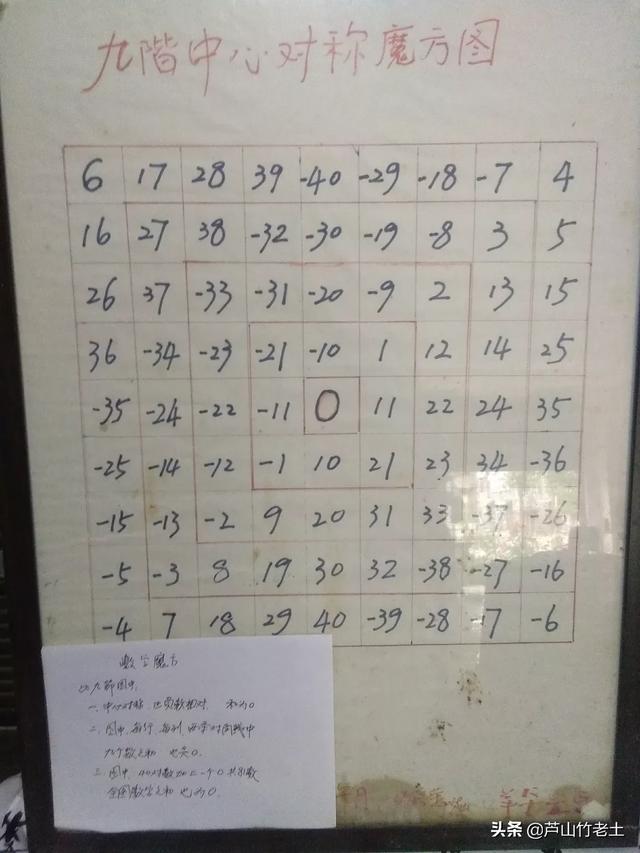 九階中心对称魔方图
6 17 28 39 -40 -29 -18 -7 4
16 27 38 -32 -30 -19 -8 3 5
26 37 -33 -31 -20 -9 2 13 15
36 -34 -23 -21 -10 1 12 14 25
-35 -24 -22 -11 0 11 22 24 35
-25 -14 -12 -1 10 21 23 34 -36
-15 -13 -2 9 20 31 33 -37 -26
-5 -3 8 19 30 32 -38 -27 -16
-4 7 18 29 40 -39 -28 -17 -6
数学魔方
九节图中
一、中心对称、正负数相对 和为0
二、图中、每行、每列、两条对角线中
九个数之和 也是0.
三、图中、40对数加上一个0共81数
全图数字之和 也为0.
头条 @芦山竹老土